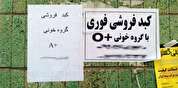 کبد فروشی فوری
با گروه خونی +O
کبد فروشی
گروه خونی
A+